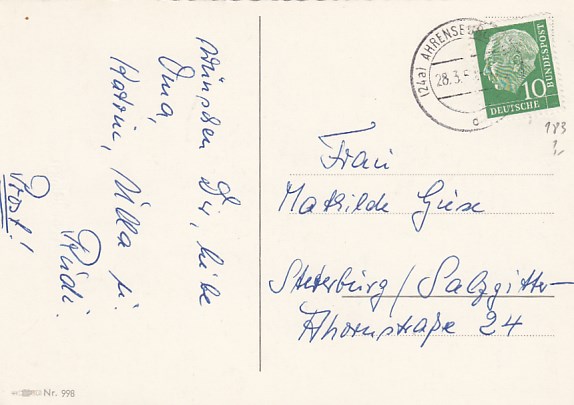 wünschen Dir, liebe
Oma,
Katrin, Ulla u.
Rudi.
Prost!
(24a) AHRENSB
28.3.5
c
10
DEUTSCHE
BUNDESPOST
183
1,-
Frau
Mathilde Giese
Steterburg/Salzgitter-
Ahornstraße 24
Nr. 998